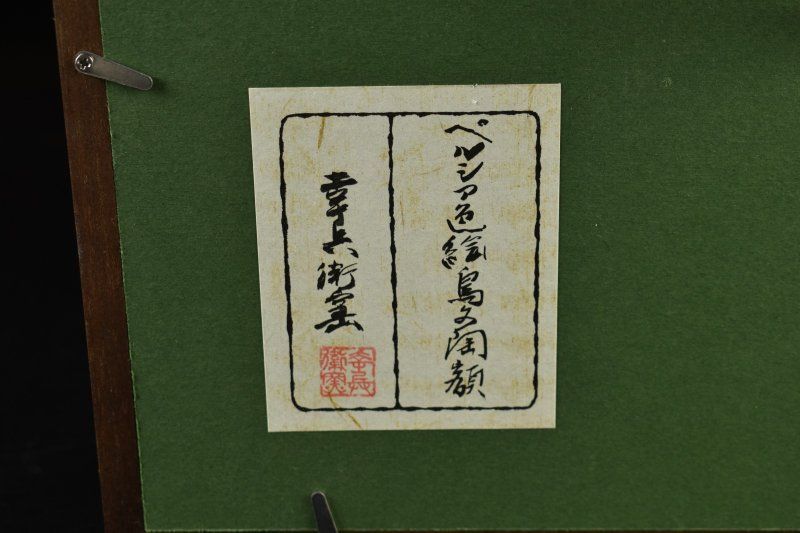 ペルシア色絵鳥文陶額
幸兵衛窯
幸兵衛窯